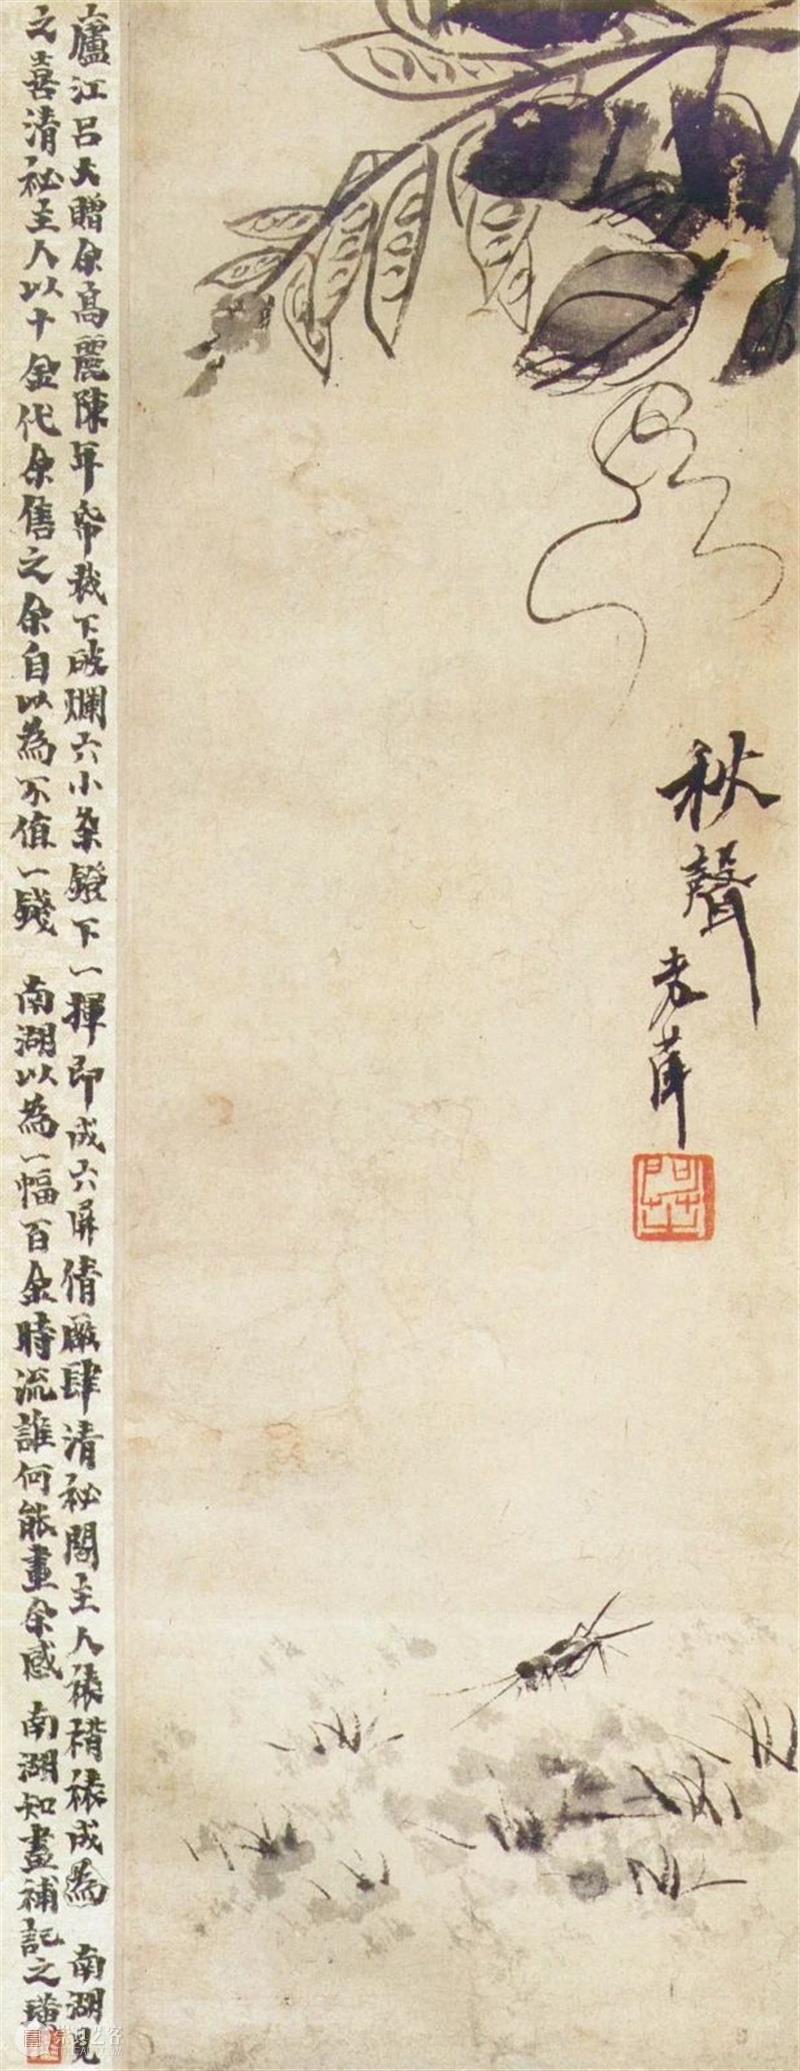 秋聲
老萍
廬江呂大贈余高麗陳年帋裁下破爛六小条鐙下一揮即成六屏倩厰肆清祕閣主人裱褙裱成為 南湖見
之喜清祕主人以十金代余售之余自以為不值一錢 南湖以為一幅百金時流誰何能畫余感 南湖知畫補記之璜